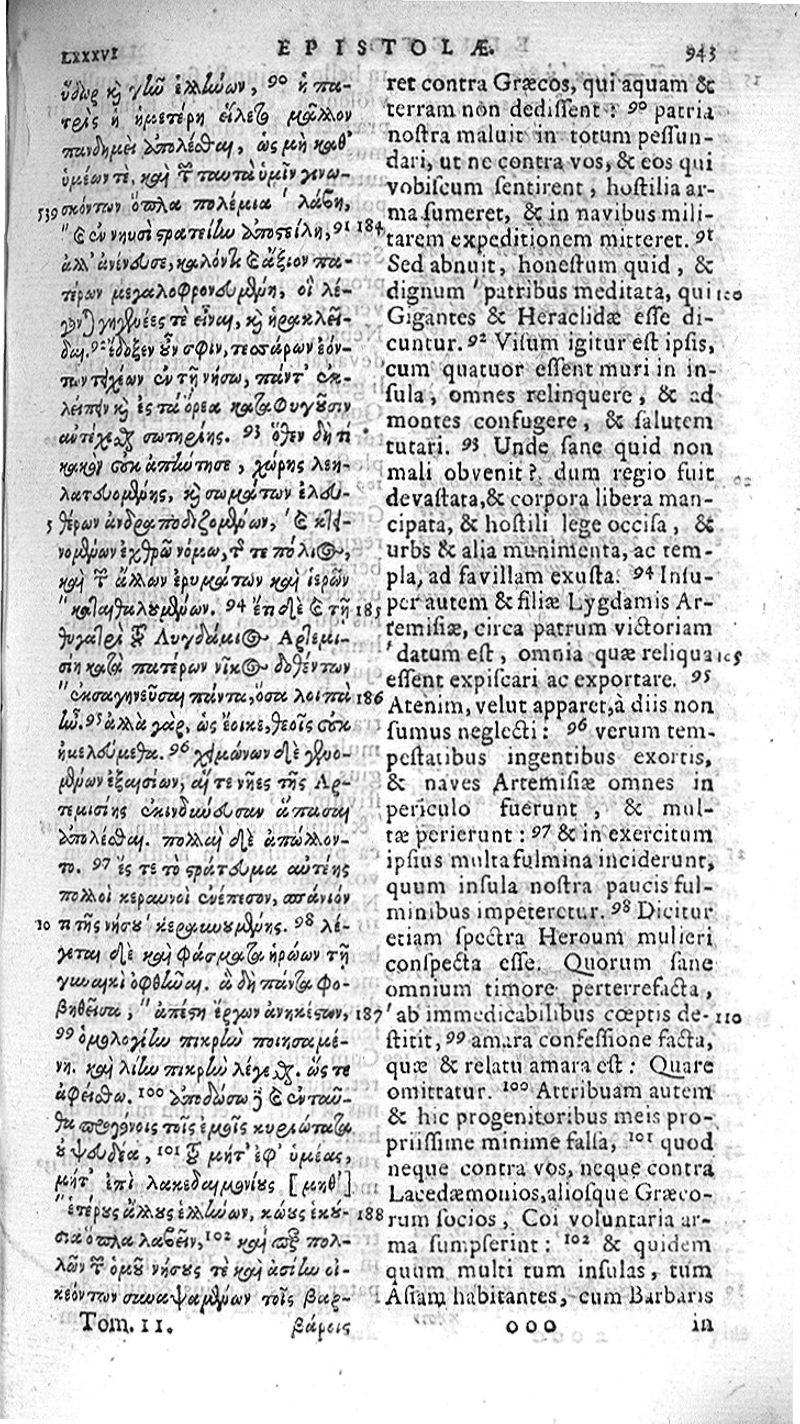 LXXXVI EPISTOLÆ. 943
ὕδωρ καὶ γῆν ἑλλήνων, 90 ἡ πα-
τρὶς ἡ ἡμετέρη εἵλετο μᾶλλον
πανδημεὶ ἀπολέσθαι, ὡς μὴ καθ'
ὑμέων τε, καὶ τῶν ταυτὰ ὑμῖν γινω-
539 σκόντων ὅπλα πολέμια ' λάβῃ,
" καὶ ἐν νηυσὶ στρατείην ἀποστείλῃ, 91 184
ἀλλ' ἀνένευσε, καλόν τι καὶ ἄξιον πα-
τέρων μεγαλοφρονευμένη, οἳ λέ-
γονται γηγενέες τὲ εἶναι, καὶ ἡρακλεῖ-
δαι. 92 ἔδοξεν οὖν σφιν, τεσσάρων ἐόν-
των τειχέων ἐν τῇ νήσῳ, πάντ' ἐκ-
λείπειν καὶ ἐς τὰ ὄρεα καταφυγοῦσιν
ἀντέχεσθαι σωτηρίης. 93 ὅθεν δὴ τί
κακὸν οὐκ ἀπήντησε, χώρης λεη-
λατευομένης, καὶ σωμάτων ἐλευ-
5 θέρων ἀνδραποδιζομένων, ' καὶ κτει-
νομένων ἐχθρῶν νόμῳ, τῆς τε πόλιος,
καὶ τῶν ἄλλων ἐρυμάτων καὶ ἱερῶν
" καταιθαλουμένων. 94 ἔπι δὲ καὶ τῇ 185
θυγατρὶ τοῦ Λυγδάμιος Ἀρτεμι-
σίῃ κατὰ πατέρων νῖκος δοθέντων
" ἐκσαγηνεῦσαι πάντα, ὅσα λοιπὰ 186
ἦν. 95 ἀλλὰ γὰρ, ὡς ἔοικε, θεοῖς οὐκ
ἠμελούμεθα. 96 χειμώνων δὲ γενο-
μένων ἐξαισίων, αἵ τε νῆες τῆς Ἀρ-
τεμισίης ἐκινδύνευσαν ἅπασαι
ἀπολέσθαι. πολλαὶ δὲ ἀπώλλον-
το. 97 ἔς τε τὸ στράτευμα αὐτέης
πολλοὶ κεραυνοὶ ἐνέπεσον, σπάνιόν
10 τι τῆς νήσου ' κεραυνουμένης. 98 λέ-
γεται δὲ καὶ φάσματα ἡρώων τῇ
γυναικὶ ὀφθῆναι. ἃ δὴ πάντα φο-
βηθεῖσα, " ἀπέστη ἔργων ἀνηκέστων, 187
99 ὁμολογίην πικρὴν ποιησαμέ-
νη. καὶ λίην πικρὴν λέγεσθαι. ὥς τε
ἀφείσθω. 100 ἀποδώσω δὲ καὶ ἐνταῦ-
θα προγόνοις τοῖς ἐμοῖς κυριώτατα
οὐ ψευδέα, 101 τοῦ μήτ' ἐφ' ὑμέας,
μήτ' ἐπὶ λακεδαιμονίους [μηθ']
" ἑτέρους ἄλλους ἑλλήνων, κώους ἑκού- 188
σια ὅπλα λαβεῖν, 102 καὶ ταῦτα πολ-
λῶν τῶν ὁμοῦ νήσους τὲ καὶ ἀσίην οἰ-
κεόντων συναψαμένων τοῖς βαρ-
Tom. II. βάροις
ret contra Græcos, qui aquam &
terram non dedissent: 90 patria
nostra maluit in totum pessun-
dari, ut ne contra vos, & eos qui
vobiscum sentirent, hostilia ar-
ma sumeret, & in navibus mili-
tarem expeditionem mitteret. 91
Sed abnuit, honestum quid, &
dignum ' patribus meditata, qui 100
Gigantes & Heraclidæ esse di-
cuntur. 92 Visum igitur est ipsis,
cum quatuor essent muri in in-
sula, omnes relinquere, & ad
montes confugere, & salutem
tutari. 93 Unde sane quid non
mali obvenit? dum regio fuit
devastata, & corpora libera man-
cipata, & hostili lege occisa, &
urbs & alia munimenta, ac tem-
pla, ad favillam exusta. 94 Insu-
per autem & filiæ Lygdamis Ar-
temisiæ, circa patrum victoriam
' datum est, omnia quæ reliqua 105
essent expiscari ac exportare. 95
Atenim, velut apparet, à diis non
sumus neglecti: 96 verum tem-
pestatibus ingentibus exortis,
& naves Artemisiæ omnes in
periculo fuerunt, & mul-
tæ perierunt: 97 & in exercitum
ipsius multa fulmina inciderunt,
quum insula nostra paucis ful-
minibus impeteretur. 98 Dicitur
etiam spectra Heroum mulieri
conspecta esse. Quorum sane
omnium timore perterrefacta,
' ab immedicabilibus cœptis de- 110
stitit, 99 amara confessione facta,
quæ & relatu amara est: Quare
omittatur. 100 Attribuam autem
& hic progenitoribus meis pro-
priissime minime falsa, 101 quod
neque contra vos, neque contra
Lacedæmonios, aliosque Græco-
rum socios, Coi voluntaria ar-
ma sumpserint: 102 & quidem
quum multi tum insulas, tum
Asiam habitantes, cum Barbaris
ooo in